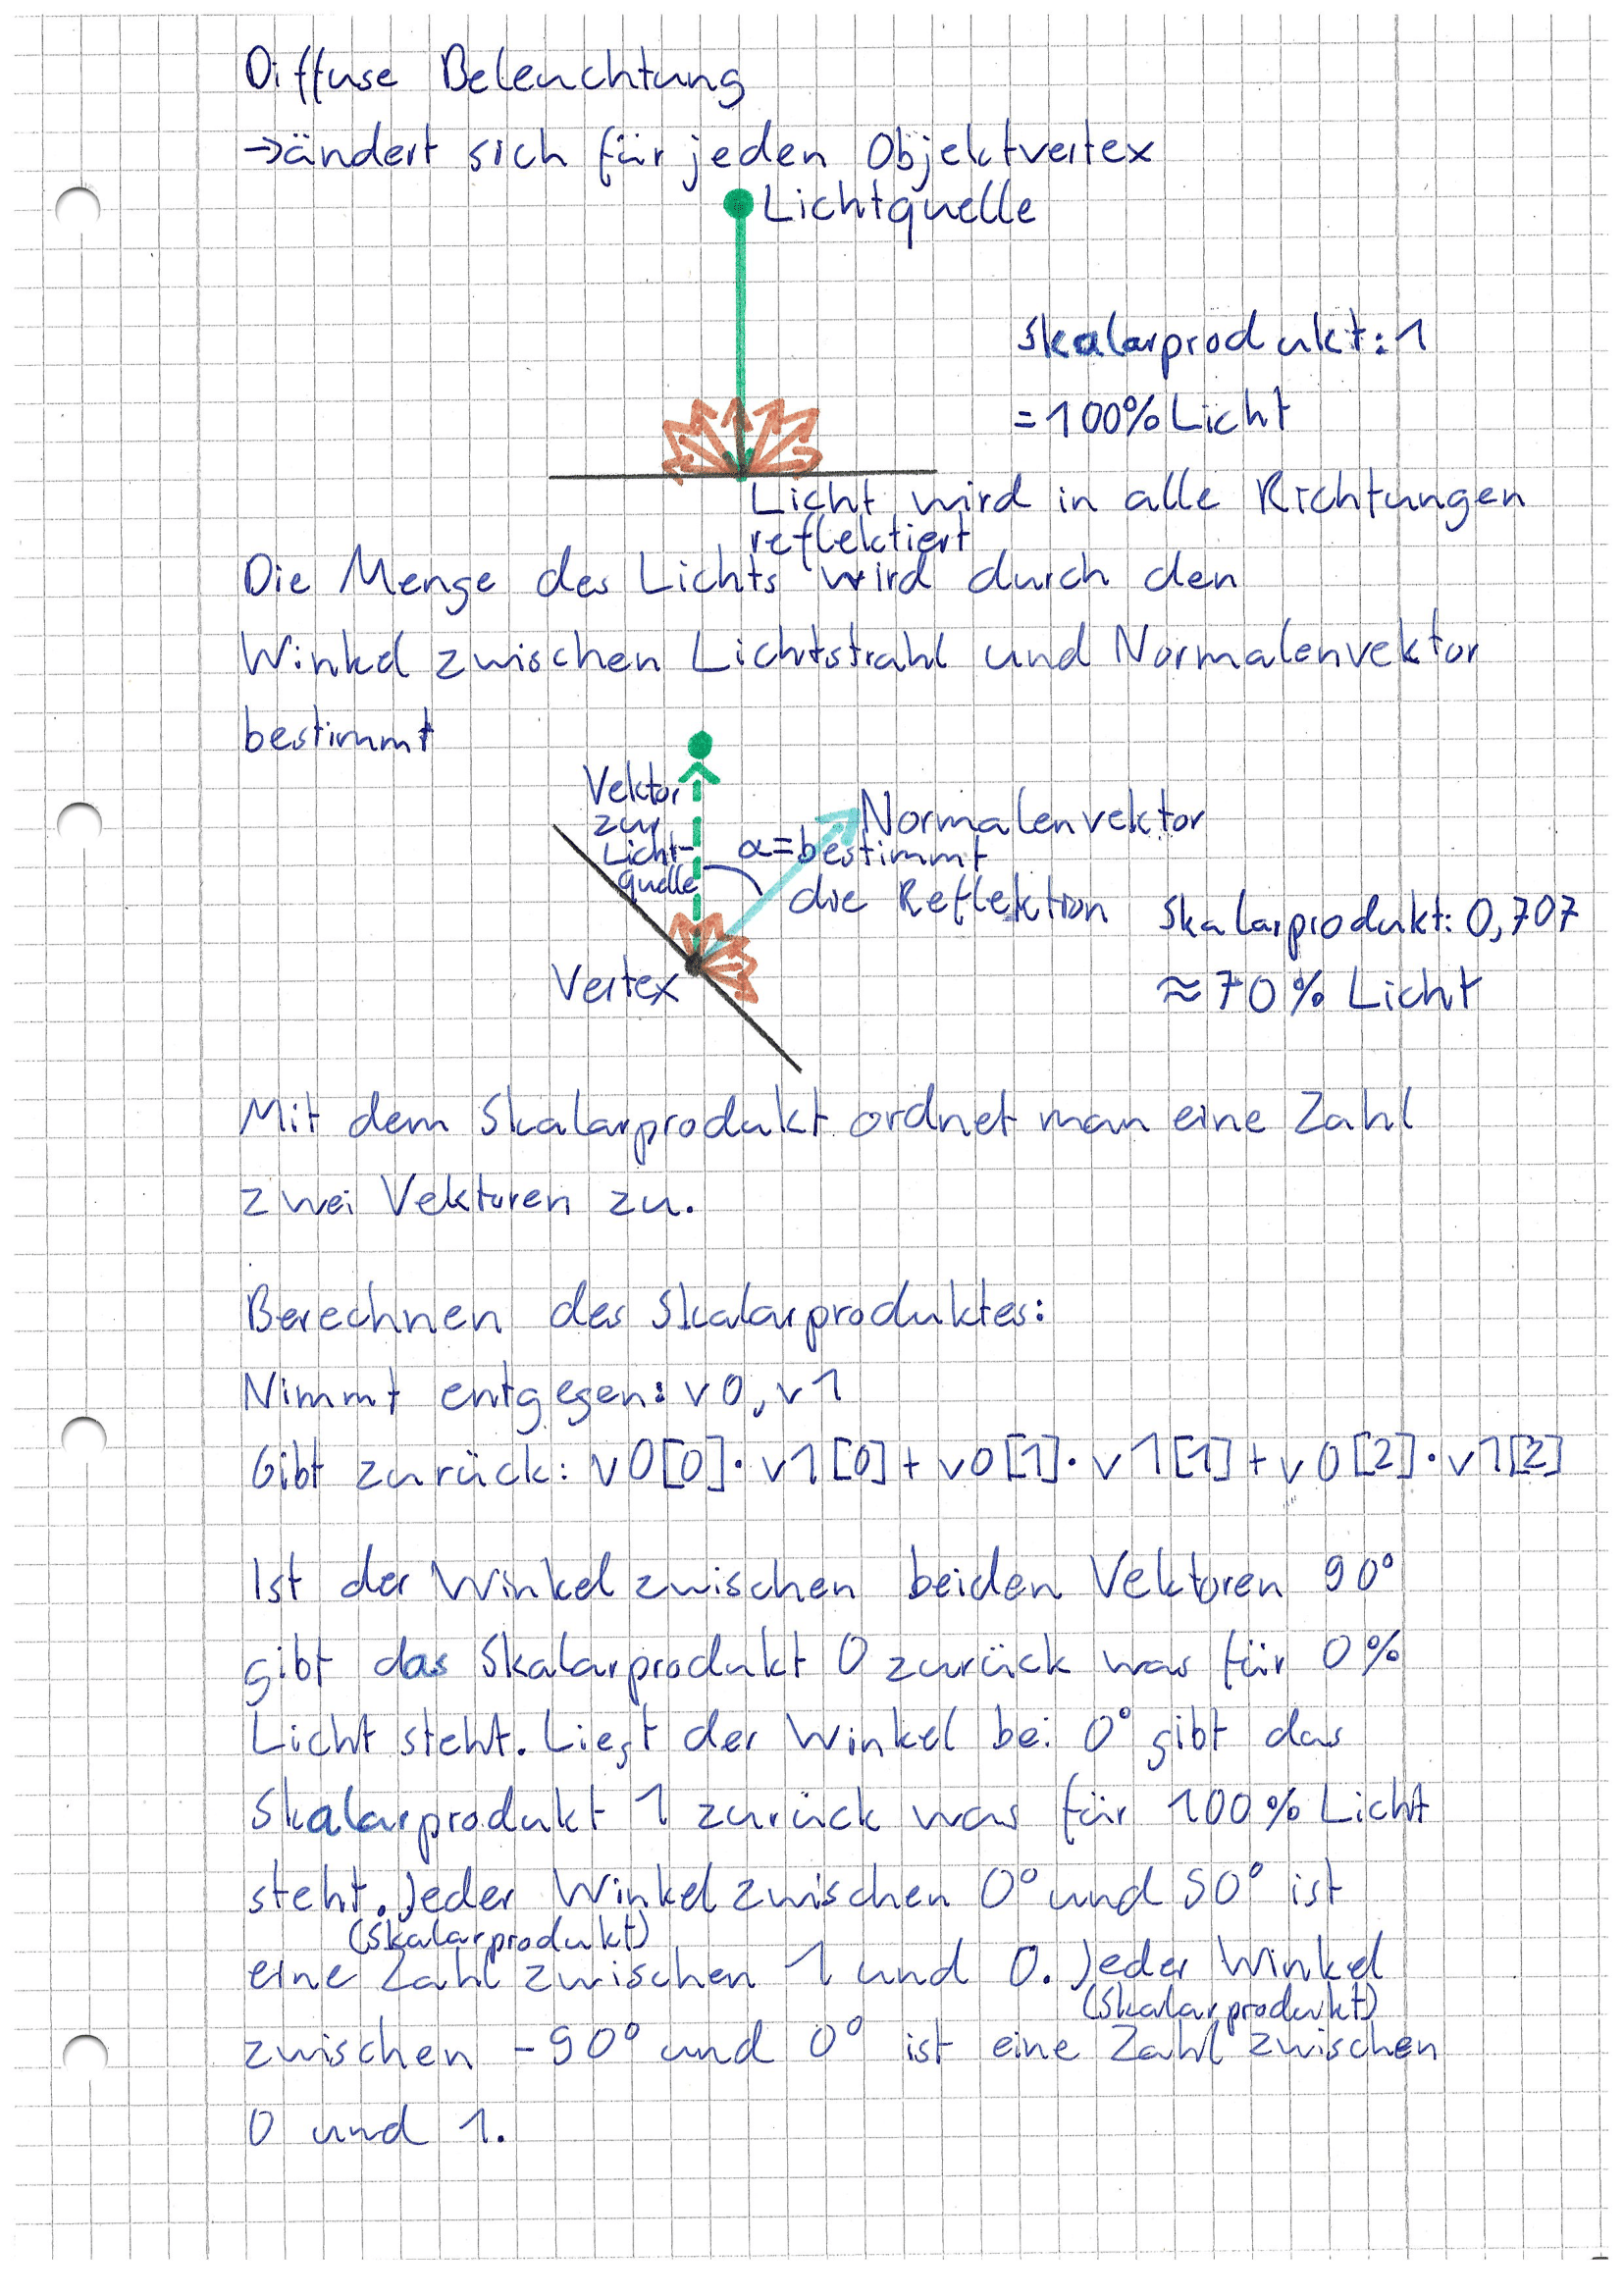 Diffuse Beleuchtung
→ändert sich für jeden Objektvertex
Lichtquelle
Skalarprodukt: 1
= 100% Licht
Licht wird in alle Richtungen
reflektiert
Die Menge des Lichts wird durch den
Winkel zwischen Lichtstrahl und Normalenvektor
bestimmt
Vektor
zur
Licht-
quelle
Normalenvektor
α = bestimmt
die Reflektion
Skalarprodukt: 0,707
≈ 70% Licht
Vertex
Mit dem Skalarprodukt ordnet man eine Zahl
zwei Vektoren zu.
Berechnen des Skalarproduktes:
Nimmt entgegen: v0, v1
Gibt zurück: v0[0] · v1[0] + v0[1] · v1[1] + v0[2] · v1[2]
Ist der Winkel zwischen beiden Vektoren 90°
gibt das Skalarprodukt 0 zurück was für 0%
Licht steht. Liegt der Winkel bei 0° gibt das
Skalarprodukt 1 zurück was für 100% Licht
steht. Jeder Winkel zwischen 0° und 90° ist
(Skalarprodukt)
eine Zahl zwischen 1 und 0. Jeder Winkel
(Skalarprodukt)
zwischen -90° und 0° ist eine Zahl zwischen
0 und 1.